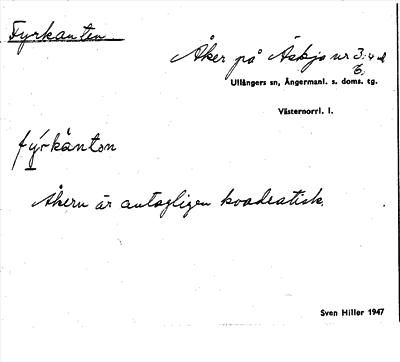 Fyrkanten
Åker på Äskja nr 3:4 d
Ullångers sn, Ångermanl. s. doms. tg.
Västernorrl. l.
fýrkànten
Åkern är antagligen kvadratisk.
Sven Hiller 1947